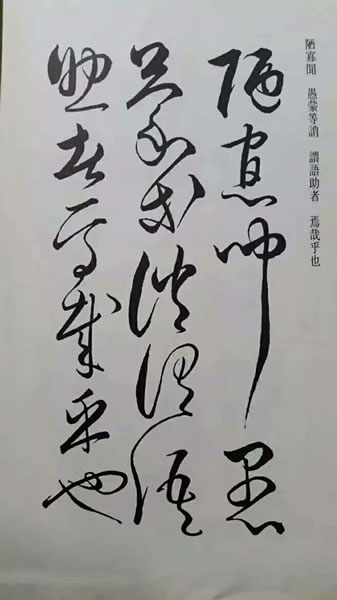 陋寡聞 愚蒙等誚 謂語助者 焉哉乎也
陋寡聞愚
蒙等誚謂語
助者焉哉乎也